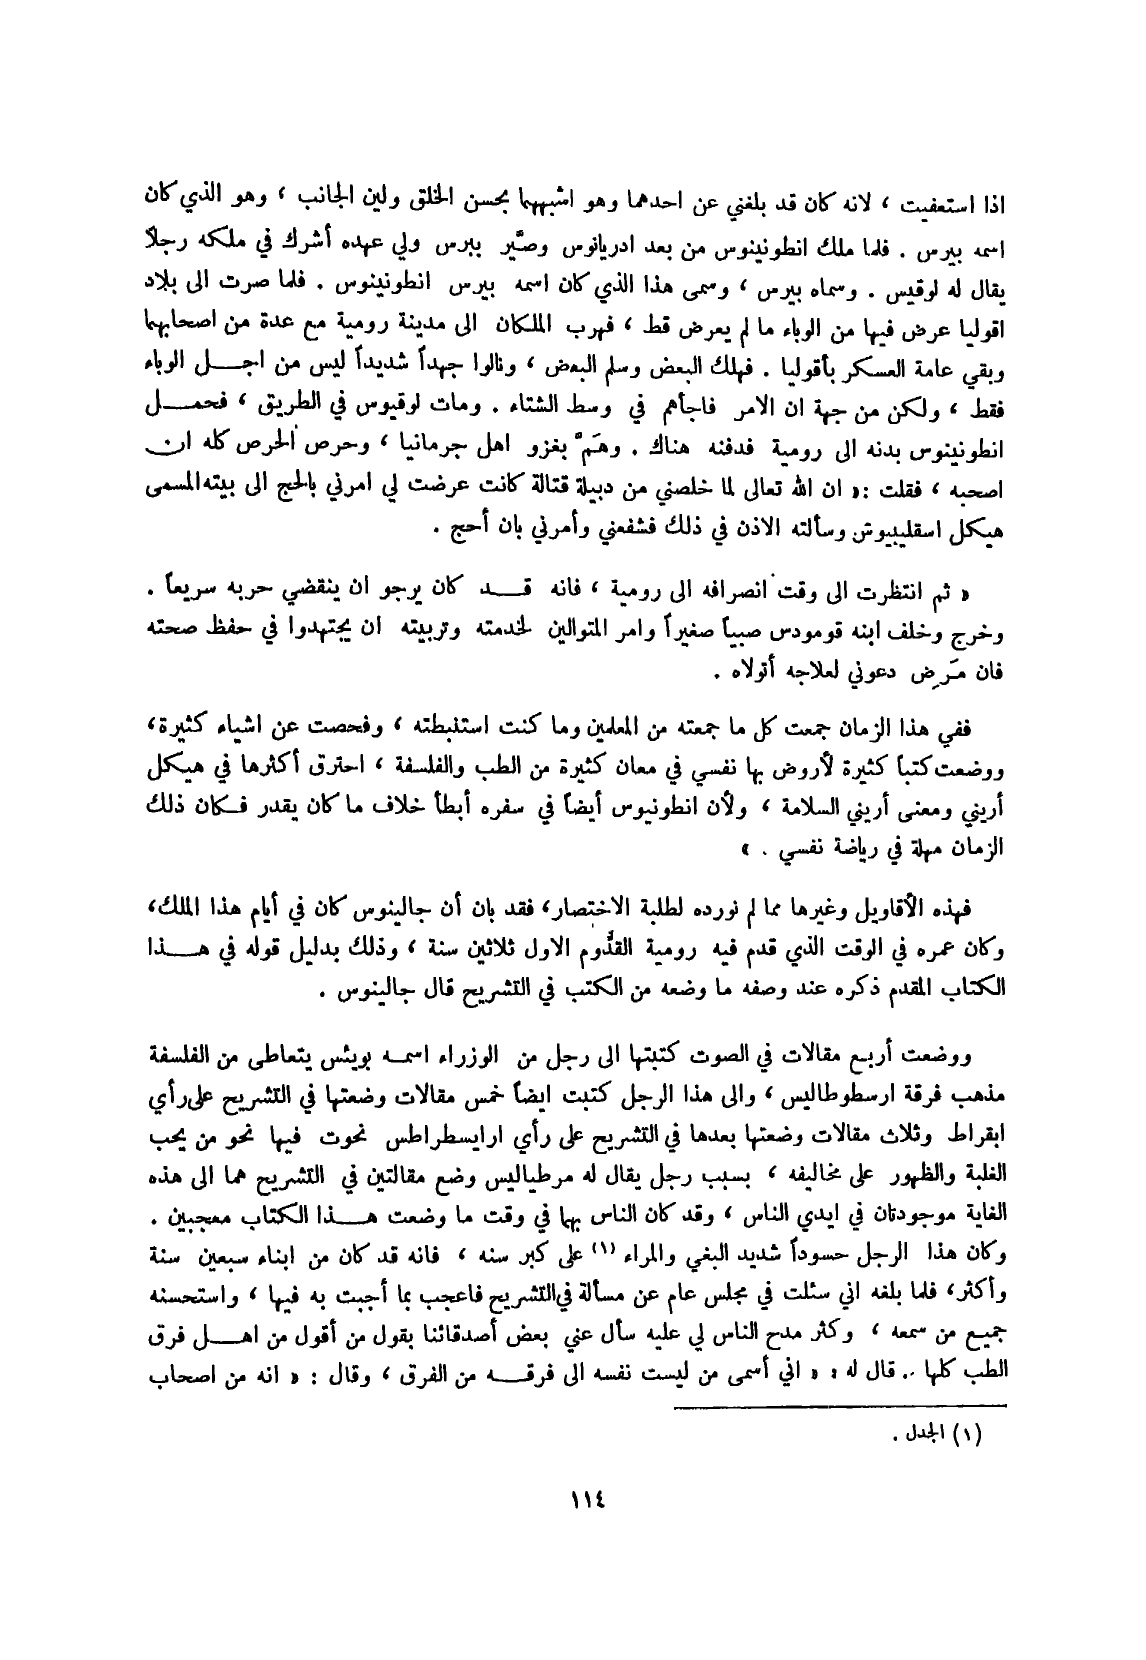 اذا استعفيت ، لانه كان قد بلغني عن احدهما وهو اشبههما بحسن الخلق ولين الجانب ، وهو الذي كان
اسمه بيرس . فلما ملك انطونينوس من بعد ادريانوس وصيّر بيرس ولي عهده أشرك في ملكه رجلاً
يقال له لوقيس . وسماه بيرس ، وسمى هذا الذي كان اسمه بيرس انطونينوس . فلما صرت الى بلاد
اقوليا عرض فيها من الوباء ما لم يعرض قط ، فهرب الملكان الى مدينة رومية مع عدة من اصحابهما
وبقي عامة العسكر بأقوليا . فهلك البعض وسلم البعض ، ونالوا جهداً شديداً ليس من اجــل الوباء
فقط ، ولكن من جهة ان الامر فاجأهم في وسط الشتاء . ومات لوقيوس في الطريق ، فحمــل
انطونينوس بدنه الى رومية فدفنه هناك . وهَمَّ بغزو اهل جرمانيا ، وحرص الحرص كله ان
اصحبه ، فقلت : « ان الله تعالى لما خلصني من دبيلة قتالة كانت عرضت لي امرني بالحج الى بيته المسمى
هيكل اسقليبيوش وسألته الاذن في ذلك فشفعني وأمرني بان أحج .
« ثم انتظرت الى وقت انصرافه الى رومية ، فانه قــد كان يرجو ان ينقضي حربه سريعاً .
وخرج وخلف ابنه قومودس صبياً صغيراً وامر المتوالين لخدمته وتربيته ان يجتهدوا في حفظ صحته
فان مَرِض دعوني لعلاجه أتولاه .
ففي هذا الزمان جمعت كل ما جمعته من المعلمين وما كنت استنبطته ، وفحصت عن اشياء كثيرة،
ووضعت كتباً كثيرة لأروض بها نفسي في معان كثيرة من الطب والفلسفة ، احترق أكثرها في هيكل
أريني ومعنى أريني السلامة ، ولأن انطونيوس أيضاً في سفره أبطأ خلاف ما كان يقدر فــكان ذلك
الزمان مهلة في رياضة نفسي . »
فهذه الأقاويل وغيرها مما لم نورده لطلبة الاختصار، فقد بان أن جالينوس كان في أيام هذا الملك،
وكان عمره في الوقت الذي قدم فيه رومية القدُّوم الاول ثلاثين سنة ، وذلك بدليل قوله في هــذا
الكتاب المقدم ذكره عند وصفه ما وضعه من الكتب في التشريح قال جالينوس .
ووضعت أربع مقالات في الصوت كتبتها الى رجل من الوزراء اسمه بويثس يتعاطى من الفلسفة
مذهب فرقة ارسطوطاليس ، والى هذا الرجل كتبت ايضاً خمس مقالات وضعتها في التشريح على رأي
ابقراط وثلاث مقالات وضعتها بعدها في التشريح على رأي ارايسطراطس نحوت فيها نحو من يحب
الغلبة والظهور على مخاليفه ، بسبب رجل يقال له مرطياليس وضع مقالتين في التشريح هما الى هذه
الغاية موجودتان في ايدي الناس ، وقد كان الناس بهما في وقت ما وضعت هــذا الكتاب معجبين .
وكان هذا الرجل حسوداً شديد البغي والمراء (١) على كبر سنه ، فانه قد كان من ابناء سبعين سنة
وأكثر، فلما بلغه اني سئلت في مجلس عام عن مسألة في التشريح فاعجب بما أجبت به فيها ، واستحسنه
جميع من سمعه ، وكثر مدح الناس لي عليه سأل عني بعض أصدقائنا بقول من أقول من اهــل فرق
الطب كلها .. قال له : « اني أسمى من ليست نفسه الى فرقــه من الفرق ، وقال : « انه من اصحاب
(١) الجدل .
١١٤